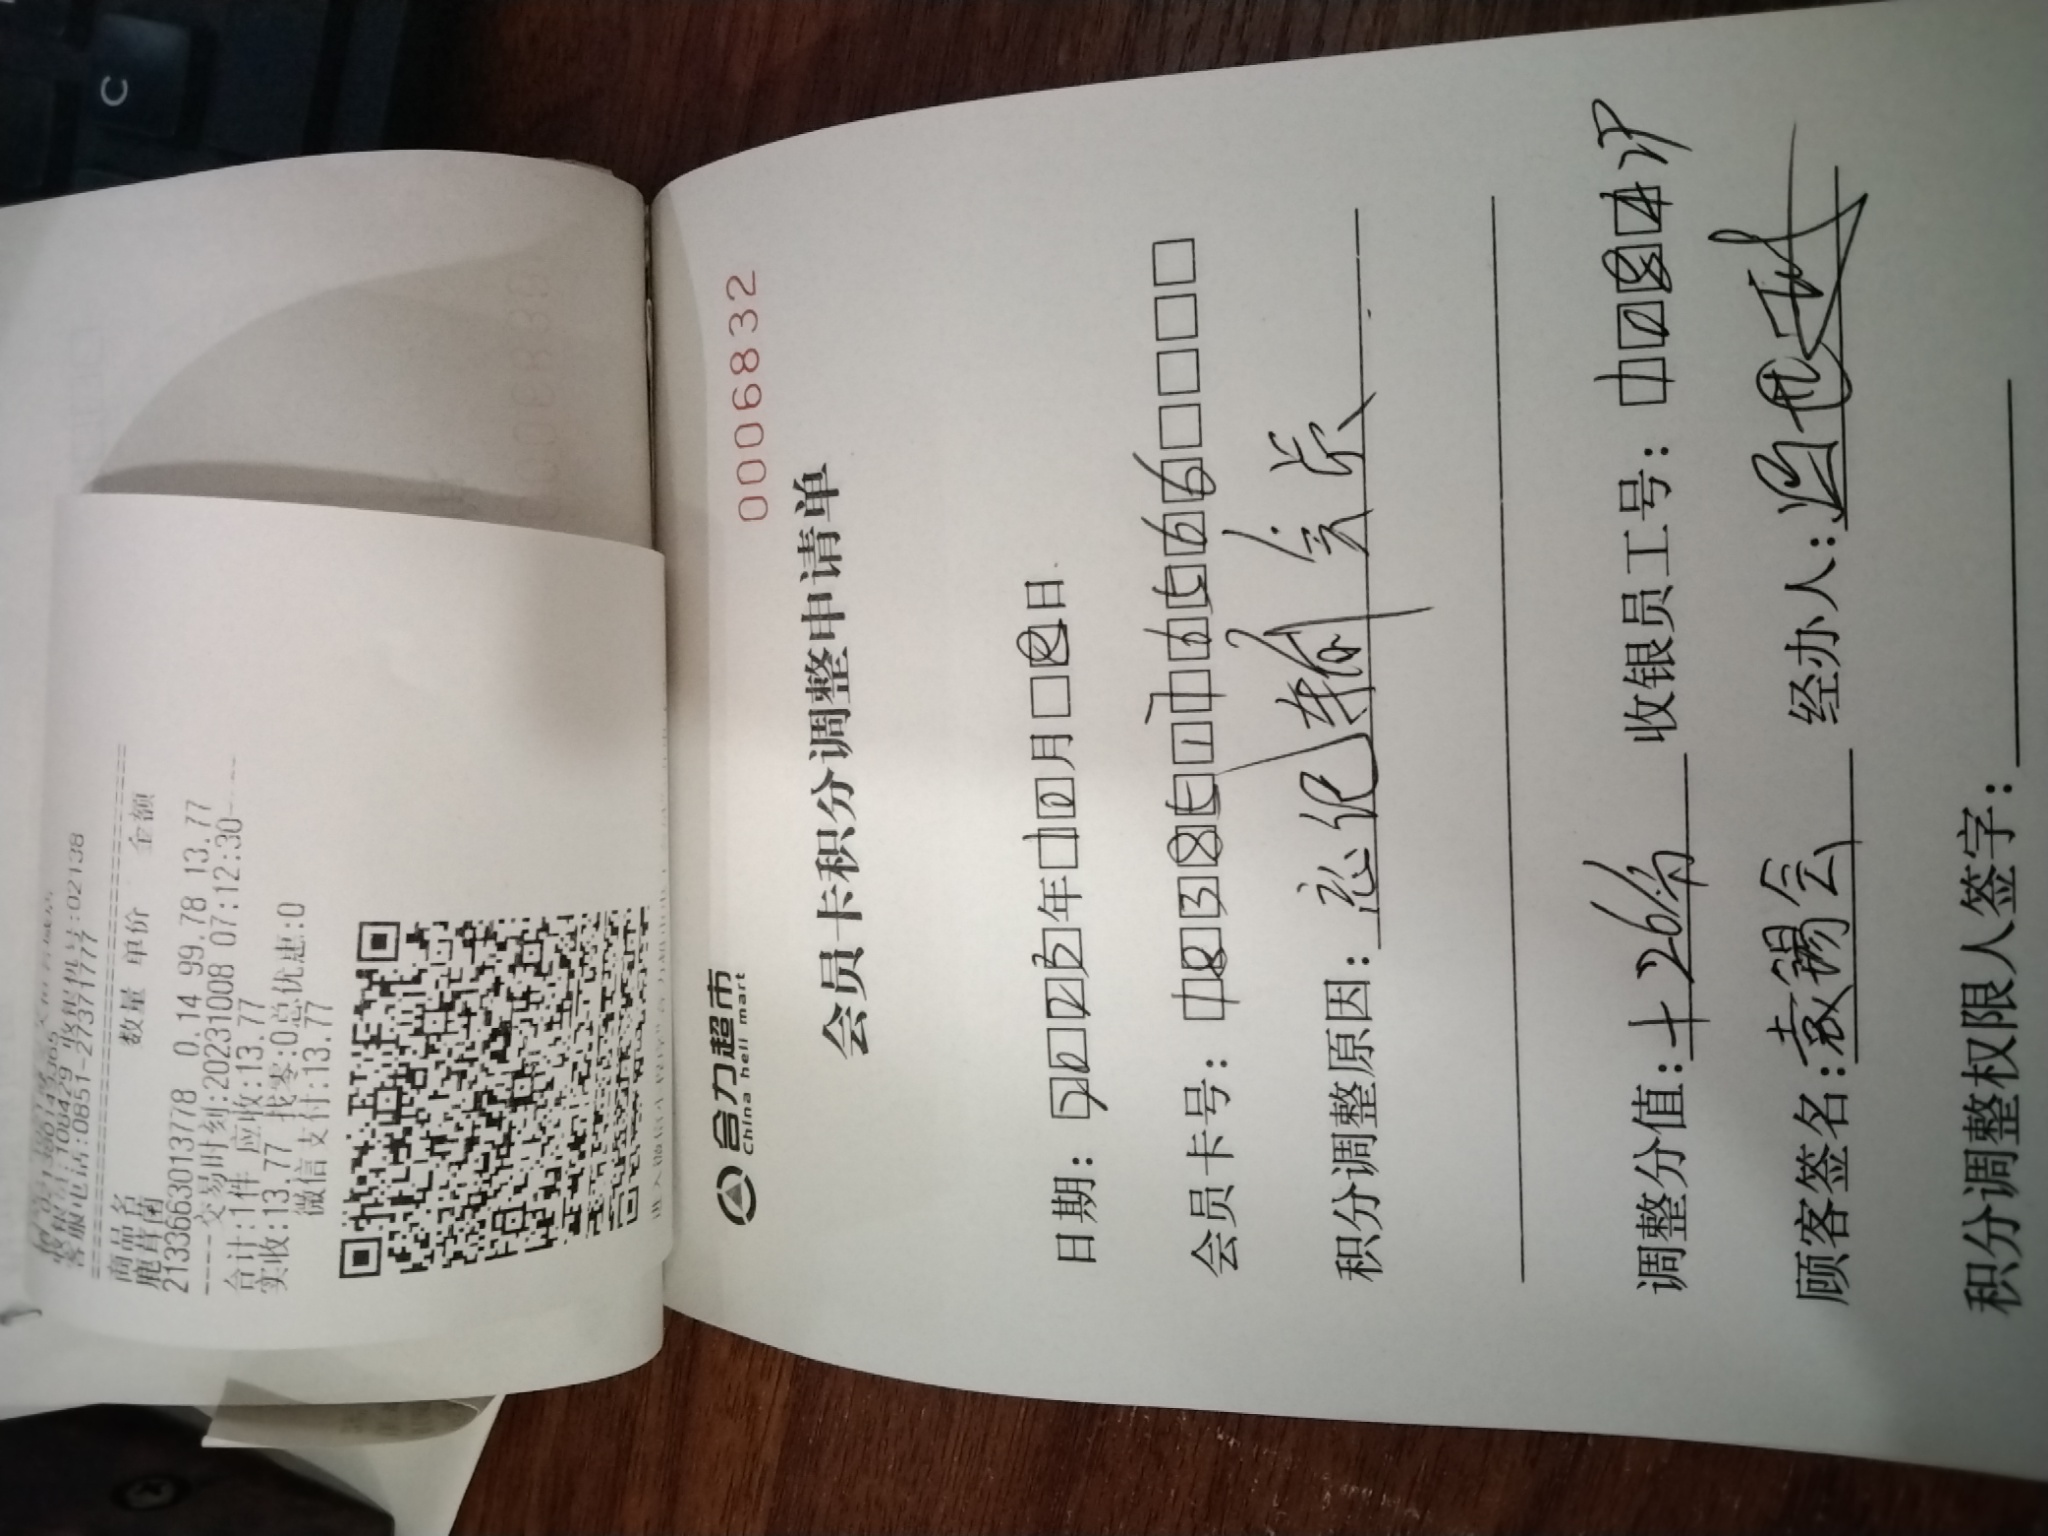 收银员:100429 收银机号:02138
客服电话:0851-27371777
商品名 数量 单价 金额
鹿茸菌
2133663013778 0.14 99.78 13.77
----交易时刻:20231008 07:12:30----
合计:1件 应收:13.77
实收:13.77 找零:0总优惠:0
微信支付:13.77
C
0006832
合力超市
China heli mart
会员卡积分调整申请单
日期: 2023年10月8日
会员卡号: 18385176566
积分调整原因: 忘记输会员
调整分值: +26分 收银员工号: 1084
顾客签名: 袁锡会 经办人:
积分调整权限人签字: